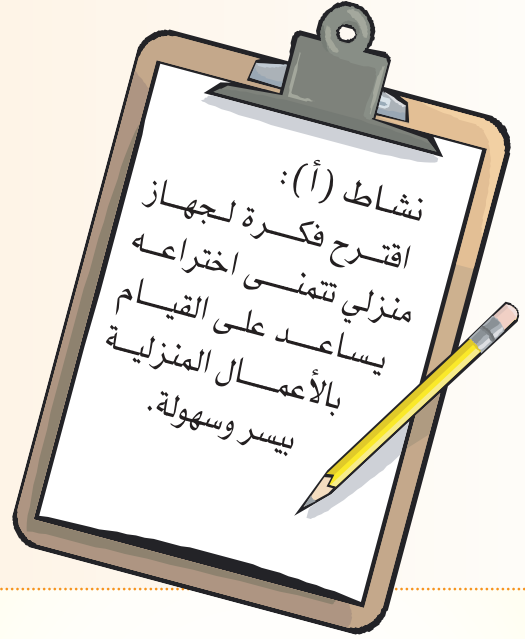 نشاط (أ):
اقترح فكرة لجهاز
منزلي تتمنى اختراعه
يساعد على القيام
بالأعمال المنزلية
بيسر وسهولة.